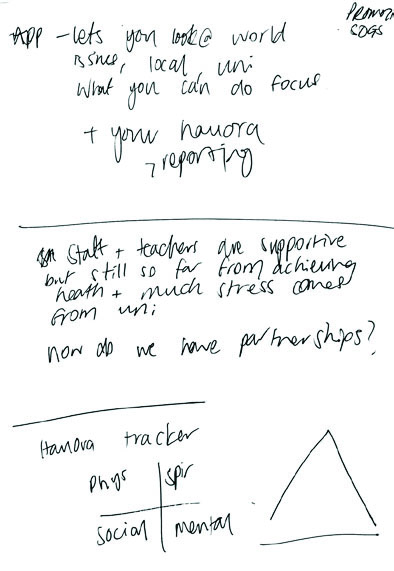 APP - lets you look@ world
issues, local uni
What you can do focus
+ your hauora
→ reporting
PROMOTE
SDGS
Staff + teachers are supportive
but still so far from achieving
heath + much stress comes
from uni
how do we have partnerships?
Hauora tracker
phys spir
social mental